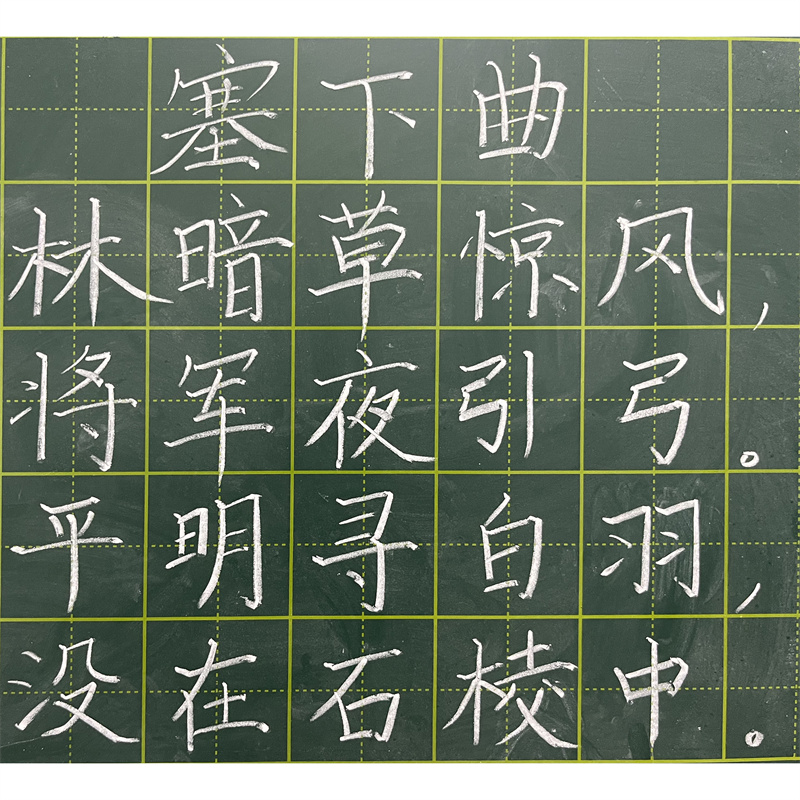 塞下曲
林暗草惊风，
将军夜引弓。
平明寻白羽，
没在石棱中。